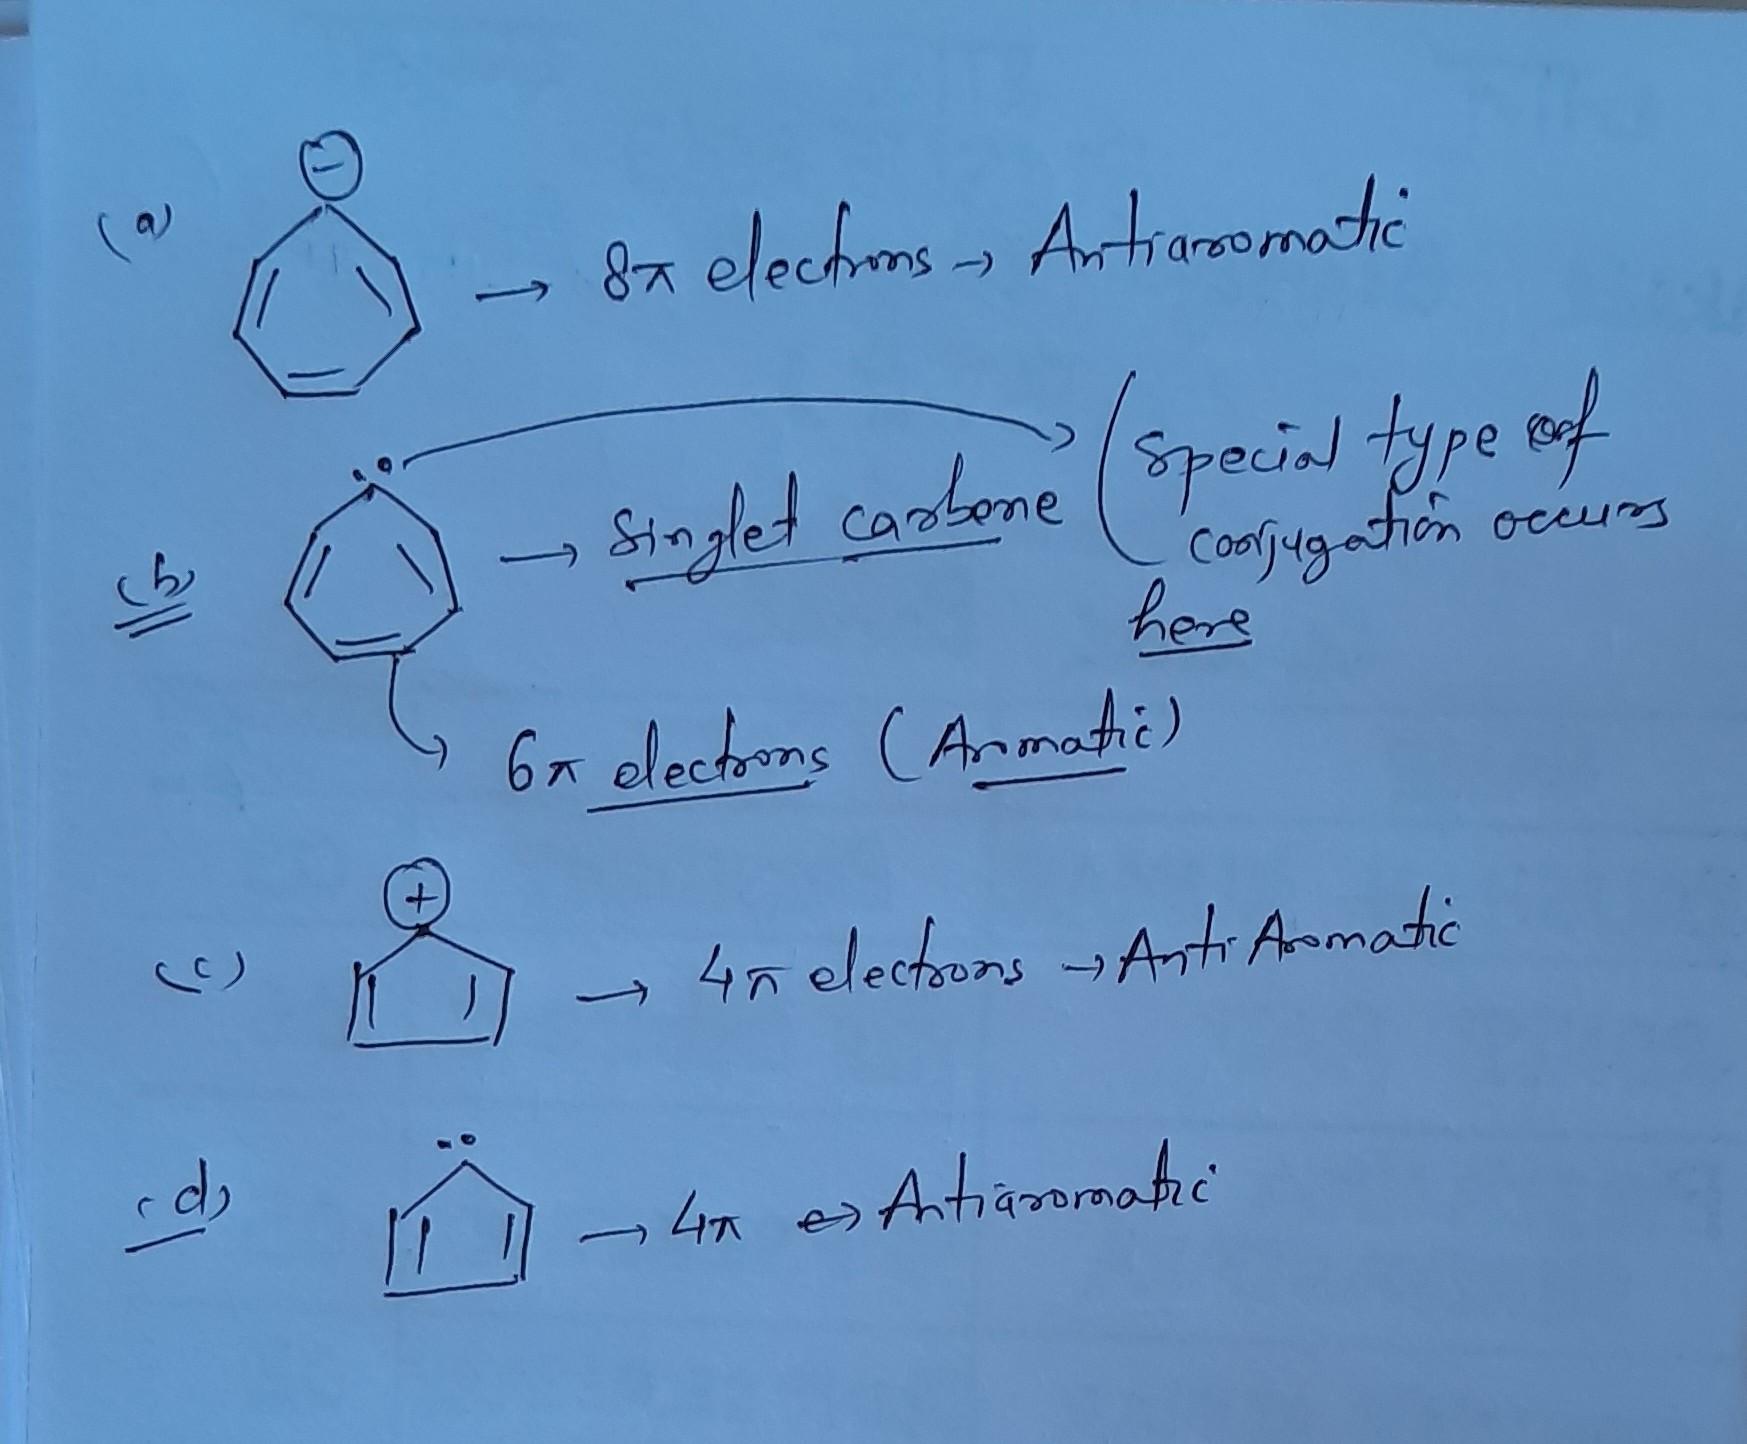 (a) ⊖ → 8π electrons → Antiaromatic
(b) → Singlet carbene (special type of
conjugation occurs
here
6π electrons (Aromatic)
(c) ⊕ → 4π electrons → Anti Aromatic
(d) → 4π ↔ Antiaromatic